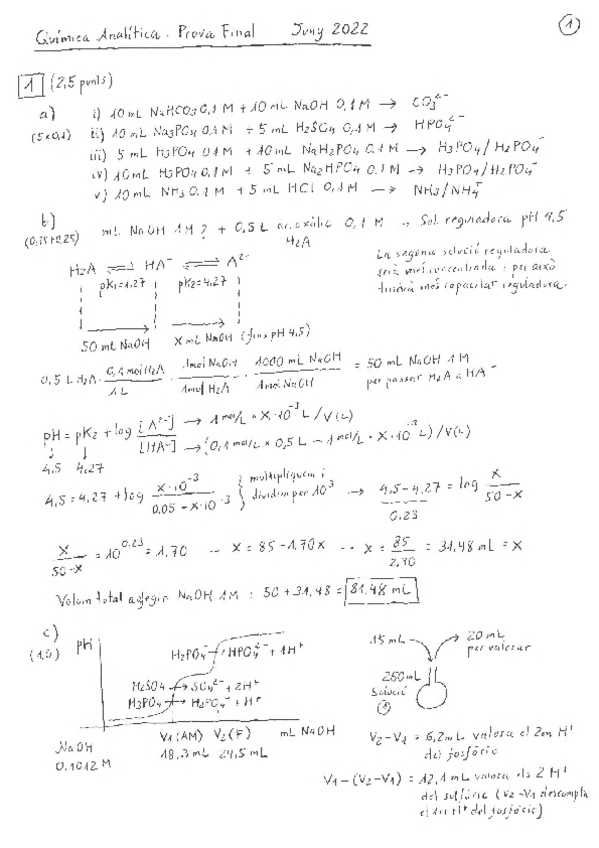 Química Analítica. Prova Final Juny 2022
1
1 (2,5 punts)
a) i) 10 mL NaHCO3 0,1 M + 10 mL NaOH 0,1 M → CO3²⁻
(5x0,1) ii) 10 mL Na3PO4 0,1 M + 5 mL H2SO4 0,1 M → HPO4²⁻
iii) 5 mL H3PO4 0,1 M + 10 mL NaH2PO4 0,1 M → H3PO4/H2PO4⁻
iv) 10 mL H3PO4 0,1 M + 5 mL Na2HPO4 0,1 M → H3PO4/H2PO4⁻
v) 10 mL NH3 0,1 M + 5 mL HCl 0,1 M → NH3/NH4⁺
b) mL NaOH 1M? + 0,5 L ac. oxàlic 0,1 M → Sol. reguladora pH 4,5
(0,75+0,25) H2A
La segona solució reguladora
serà més concentrada i per això
tindrà més capacitat reguladora.
H2A ⇌ HA⁻ ⇌ A²⁻
pK1=1,27 pK2=4,27
50 mL NaOH X mL NaOH (fins pH 4,5)
0,5 L H2A · 0,1 mol H2A / 1L · 1 mol NaOH / 1 mol H2A · 1000 mL NaOH / 1 mol NaOH = 50 mL NaOH 1M
per passar H2A a HA⁻
pH = pK2 + log [A²⁻]/[HA⁻] → 1 mol/L × X·10⁻³ L / V(L)
→ (0,1 mol/L × 0,5 L − 1 mol/L · X·10⁻³ L) / V(L)
4,5 4,27
4,5 = 4,27 + log X·10⁻³ / 0.05 − X·10⁻³ } multipliquem i dividim per 10³ → 4,5 − 4,27 = log X / 50−X
0,23
X / 50−X = 10^0,23 = 1,70 ·· X = 85 − 1,70X ·· X = 85 / 2,70 = 31,48 mL = X
Volum total afegir NaOH 1M : 50 + 31,48 = 81,48 mL
c)
(1,0) pH
H2PO4⁻ → HPO4²⁻ + 1H⁺
H2SO4 → SO4²⁻ + 2H⁺
H3PO4 → H2PO4⁻ + H⁺
V1 (AM) V2 (F) mL NaOH
18,3 mL 24,5 mL
NaOH
0.1012 M
15 mL 20 mL
per valorar
250 mL
Solució
1
V2 − V1 = 6,2 mL valora el 2on H⁺
del fosfòric
V1 − (V2 − V1) = 12,1 mL valora els 2 H⁺
del sulfúric (V2 − V1 descompta
el 1er H⁺ del fosfòric)